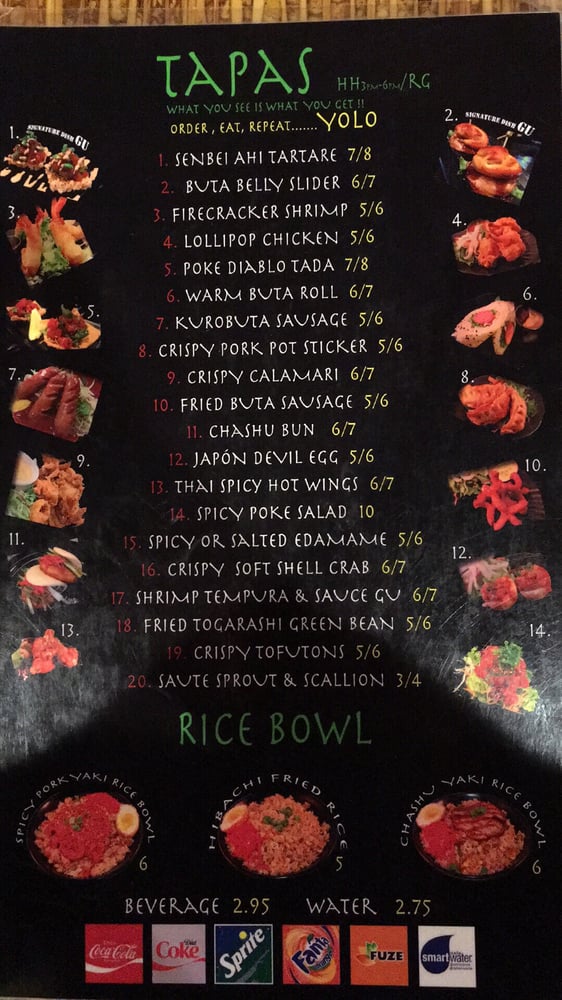 TAPAS HH3PM-6PM/RG
WHAT YOU SEE IS WHAT YOU GET !!
ORDER, EAT, REPEAT....... YOLO
1. SIGNATURE DISH GU
2. SIGNATURE DISH GU
1. SENBEI AHI TARTARE 7/8
2. BUTA BELLY SLIDER 6/7
3. FIRECRACKER SHRIMP 5/6
4. LOLLIPOP CHICKEN 5/6
5. POKE DIABLO TADA 7/8
6. WARM BUTA ROLL 6/7
7. KUROBUTA SAUSAGE 5/6
8. CRISPY PORK POT STICKER 5/6
9. CRISPY CALAMARI 6/7
10. FRIED BUTA SAUSAGE 5/6
11. CHASHU BUN 6/7
12. JAPÓN DEVIL EGG 5/6
13. THAI SPICY HOT WINGS 6/7
14. SPICY POKE SALAD 10
15. SPICY OR SALTED EDAMAME 5/6
16. CRISPY SOFT SHELL CRAB 6/7
17. SHRIMP TEMPURA & SAUCE GU 6/7
18. FRIED TOGARASHI GREEN BEAN 5/6
19. CRISPY TOFUTONS 5/6
20. SAUTE SPROUT & SCALLION 3/4
3.
4.
5.
6.
7.
8.
9.
10.
11.
12.
13.
14.
RICE BOWL
SPICY PORK YAKI RICE BOWL 6
HIBACHI FRIED RICE 5
CHASHU YAKI RICE BOWL 6
BEVERAGE 2.95 WATER 2.75
Coca-Cola
Diet Coke
Sprite
Fanta
FUZE
smartwater